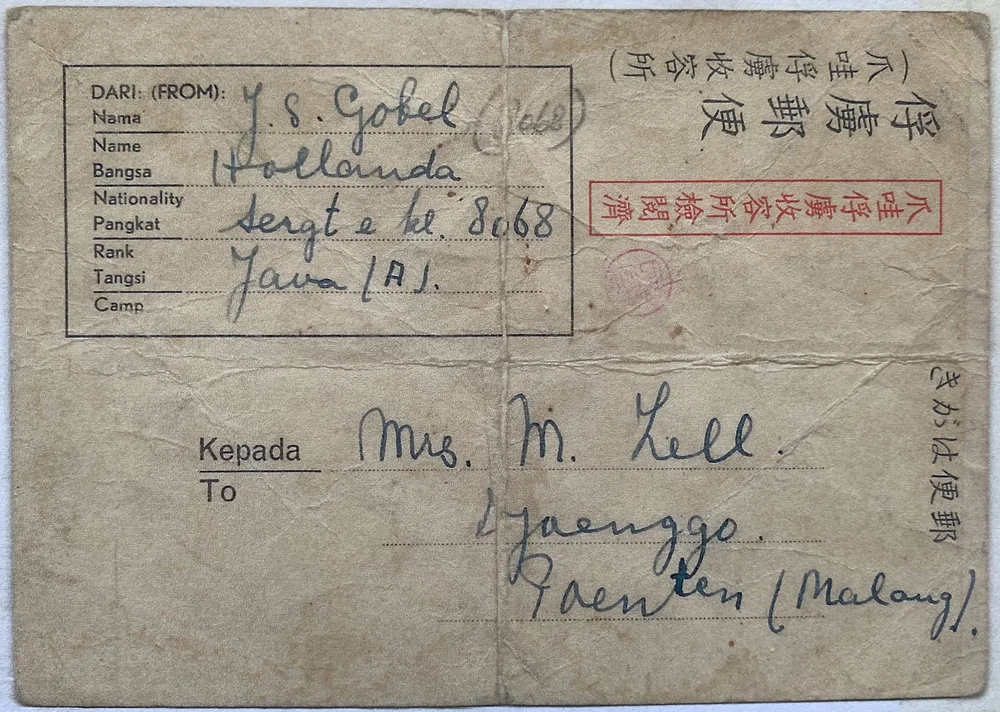 DARI: (FROM):
Nama J. S. Gobel (8068)
Name
Bangsa Hollanda
Nationality
Pangkat Sergt e kl. 8068
Rank
Tangsi Java (A).
Camp
(爪哇俘虜收容所)
俘虜郵便
爪哇俘虜收容所檢閲濟
郵便はがき
Kepada Mrs. M. Lell.
To
Djaenggo.
Poenten (Malang).